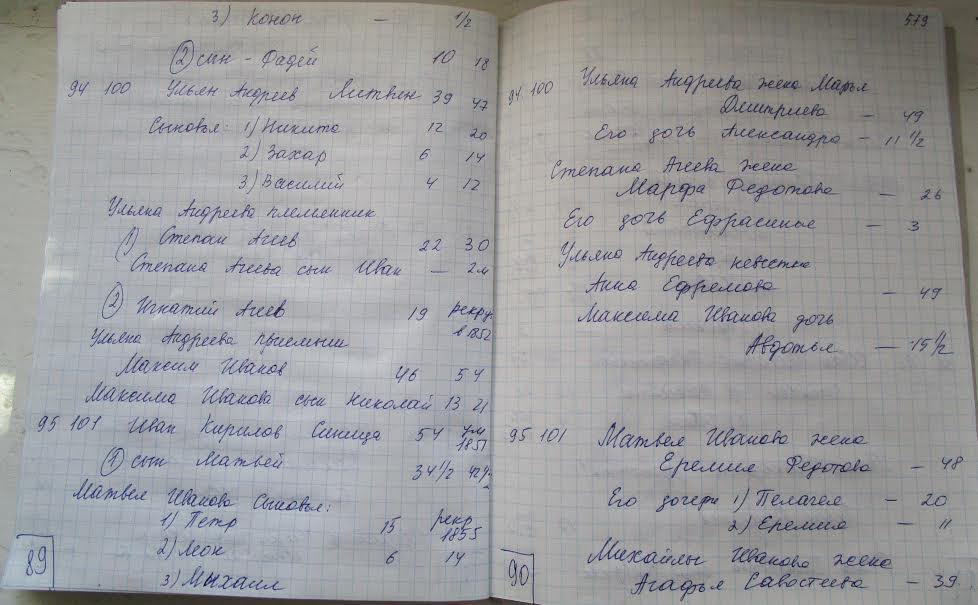 3) Конон — 1/2
② сын - Фадей 10 18
94 100 Ульян Андреев Литвин 39 47
Сыновья: 1) Никита 12 20
2) Захар 6 14
3) Василий 4 12
Ульяна Андреева племенник
① Степан Агеев 22 30
Степана Агеева сын Иван — 2м
② Игнатий Агеев 19 рекру.
в 1852
Ульяна Андреева приемыш
Максим Иванов 46 54
Максима Иванова сын Николай 13 21
95 101 Иван Кирилов Синица 54 ум
1851
① сын Матвей 34 1/2 42 1/2
Матвея Иванова Сыновья:
1) Петр 15 рекр
1855
2) Леон 6 14
3) Михаил
89
579
94 100 Ульяна Андреева жена Марья
Дмитриева — 49
Его дочь Александра — 11 1/2
Степана Агеева жена
Марфа Федотова — 26
Его дочь Ефрасинье — 3
Ульяна Андреева невестка
Анна Ефремова — 49
Максима Иванова дочь
Авдотья — 15 1/2
95 101 Матвея Иванова жена
Еремия Федотова — 48
Его дочери 1) Пелагея — 20
2) Еремия — 11
Михайлы Иванова жена
Агафья Савостеева — 39
90